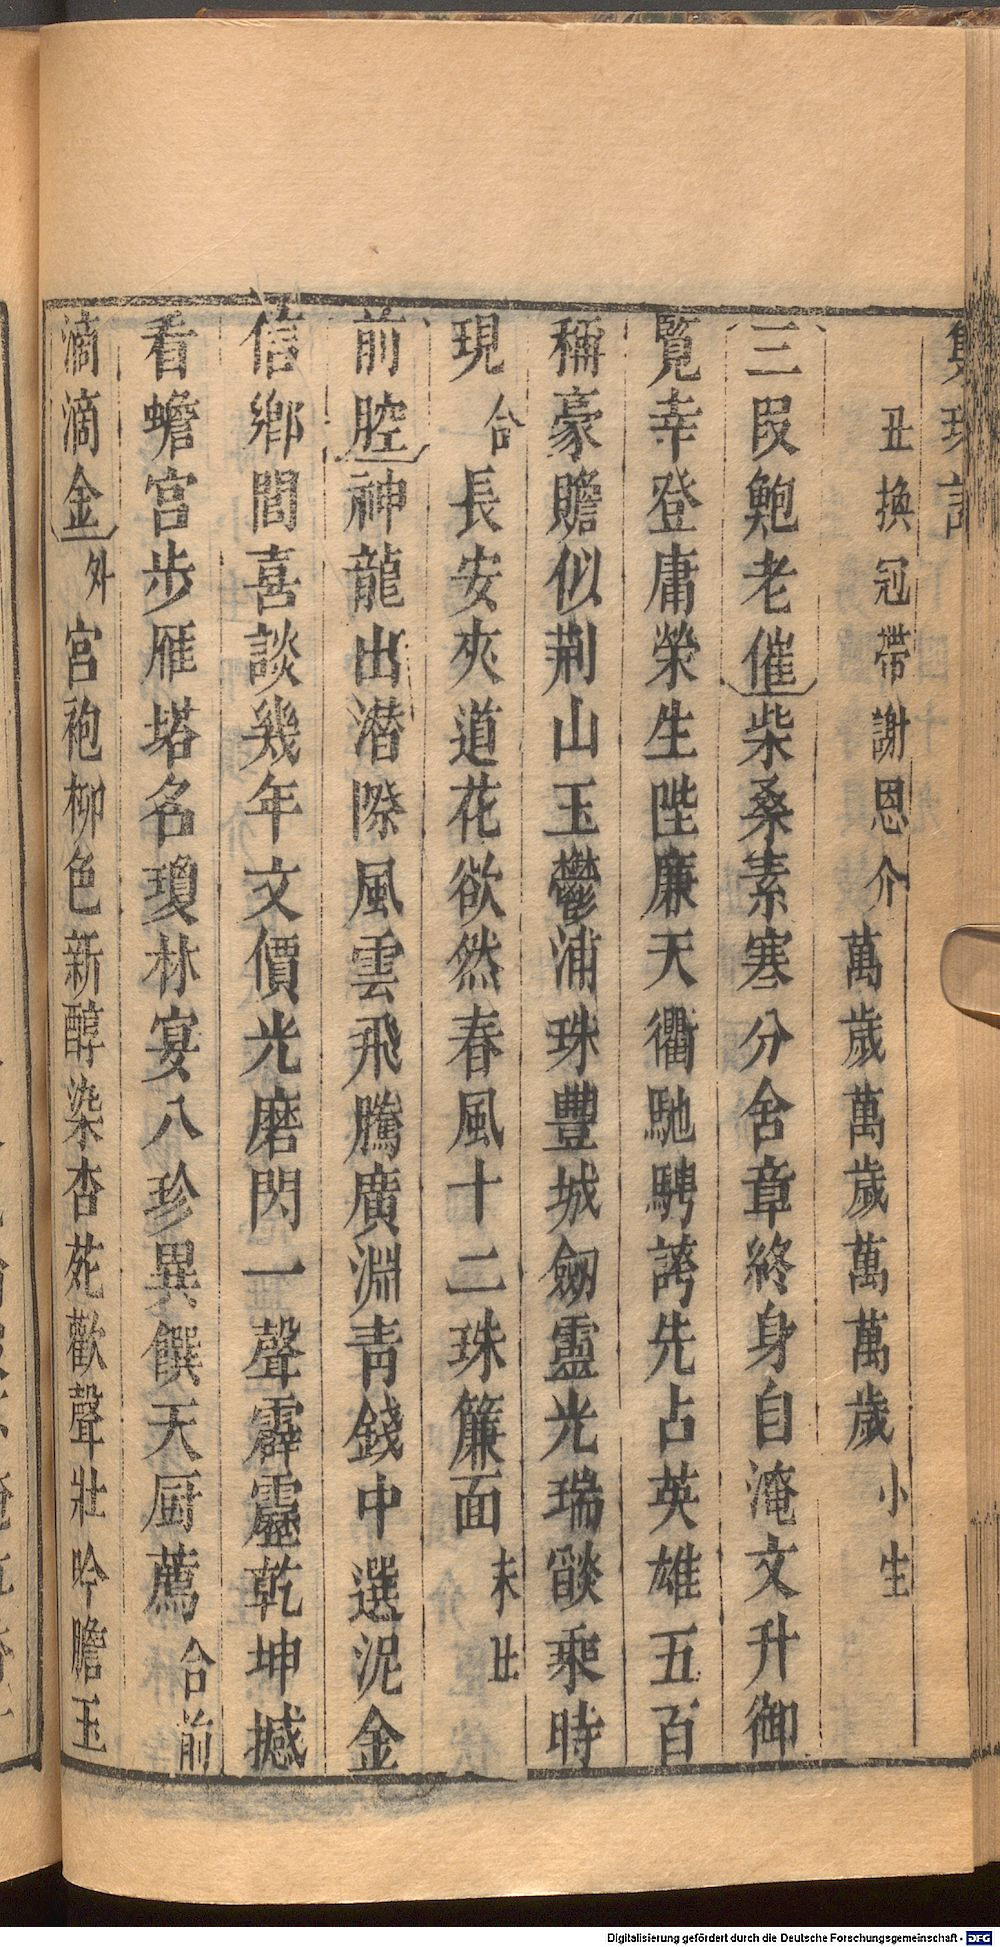 丑換冠帶謝恩介萬歲萬歲萬萬歲小生
三段鮑老催柴桑素寒分舍章終身自淹文升御
覧幸登庸榮生陛廉天衢馳騁誇先占英雄五百
稱豪贍似荆山玉鬱浦珠豐城劒靈光瑞燄乘時
現合長安夾道花欲然春風十二珠簾面末丑
前腔神龍出潛際風雲飛騰廣淵靑錢中選泥金
信鄉閭喜談幾年文價光磨閃一聲霹靂乾坤撼
看蟾宮步雁塔名瓊林宴八珍異饌天厨薦合前
滴滴金外宮袍柳色新醇染杏苑歡聲壯吟膽玉
Digitalisierung gefördert durch die Deutsche Forschungsgemeinschaft - DFG